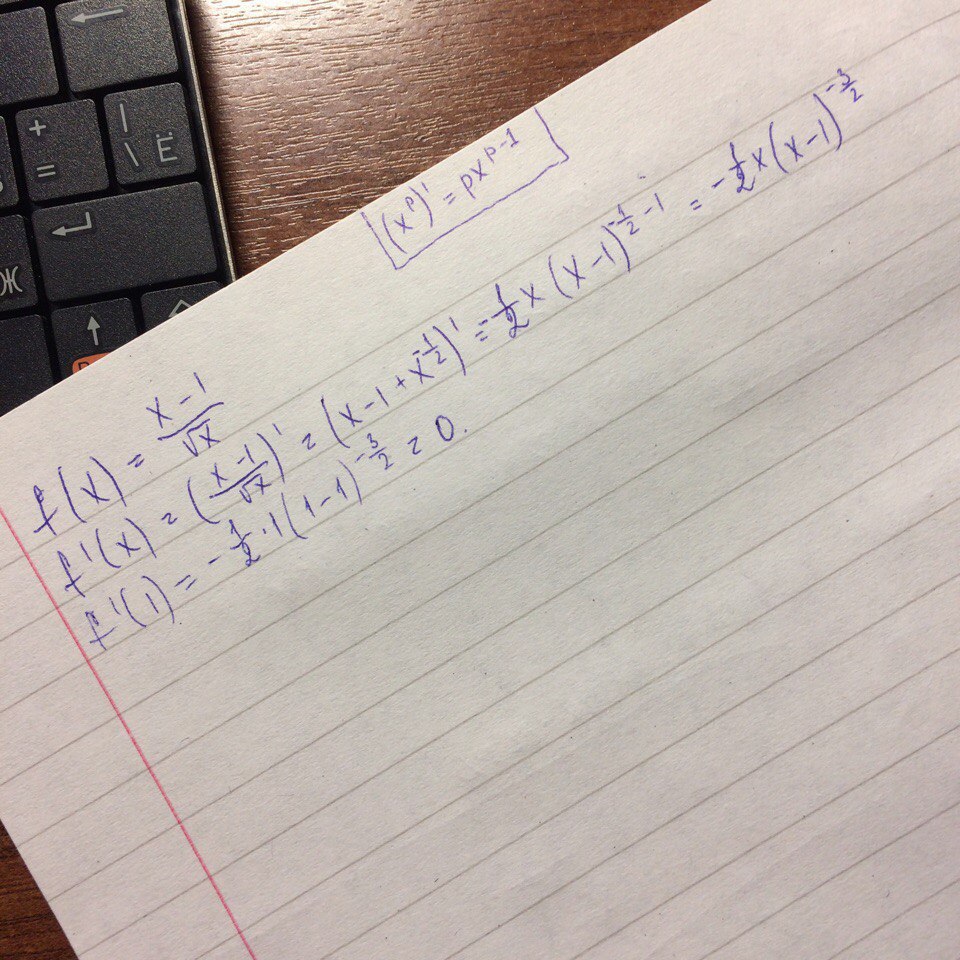 ←
+
=
|
\ Ё
Ж
↑
(x^p)' = px^(p-1)
f(x) = (x-1)/√x
f'(x) = ((x-1)/√x)' = (x-1+x^(-1/2))' = -1/2 x (x-1)^(-1/2-1) = -1/2 x (x-1)^(-3/2)
f'(1) = -1/2 · 1 (1-1)^(-3/2) = 0.